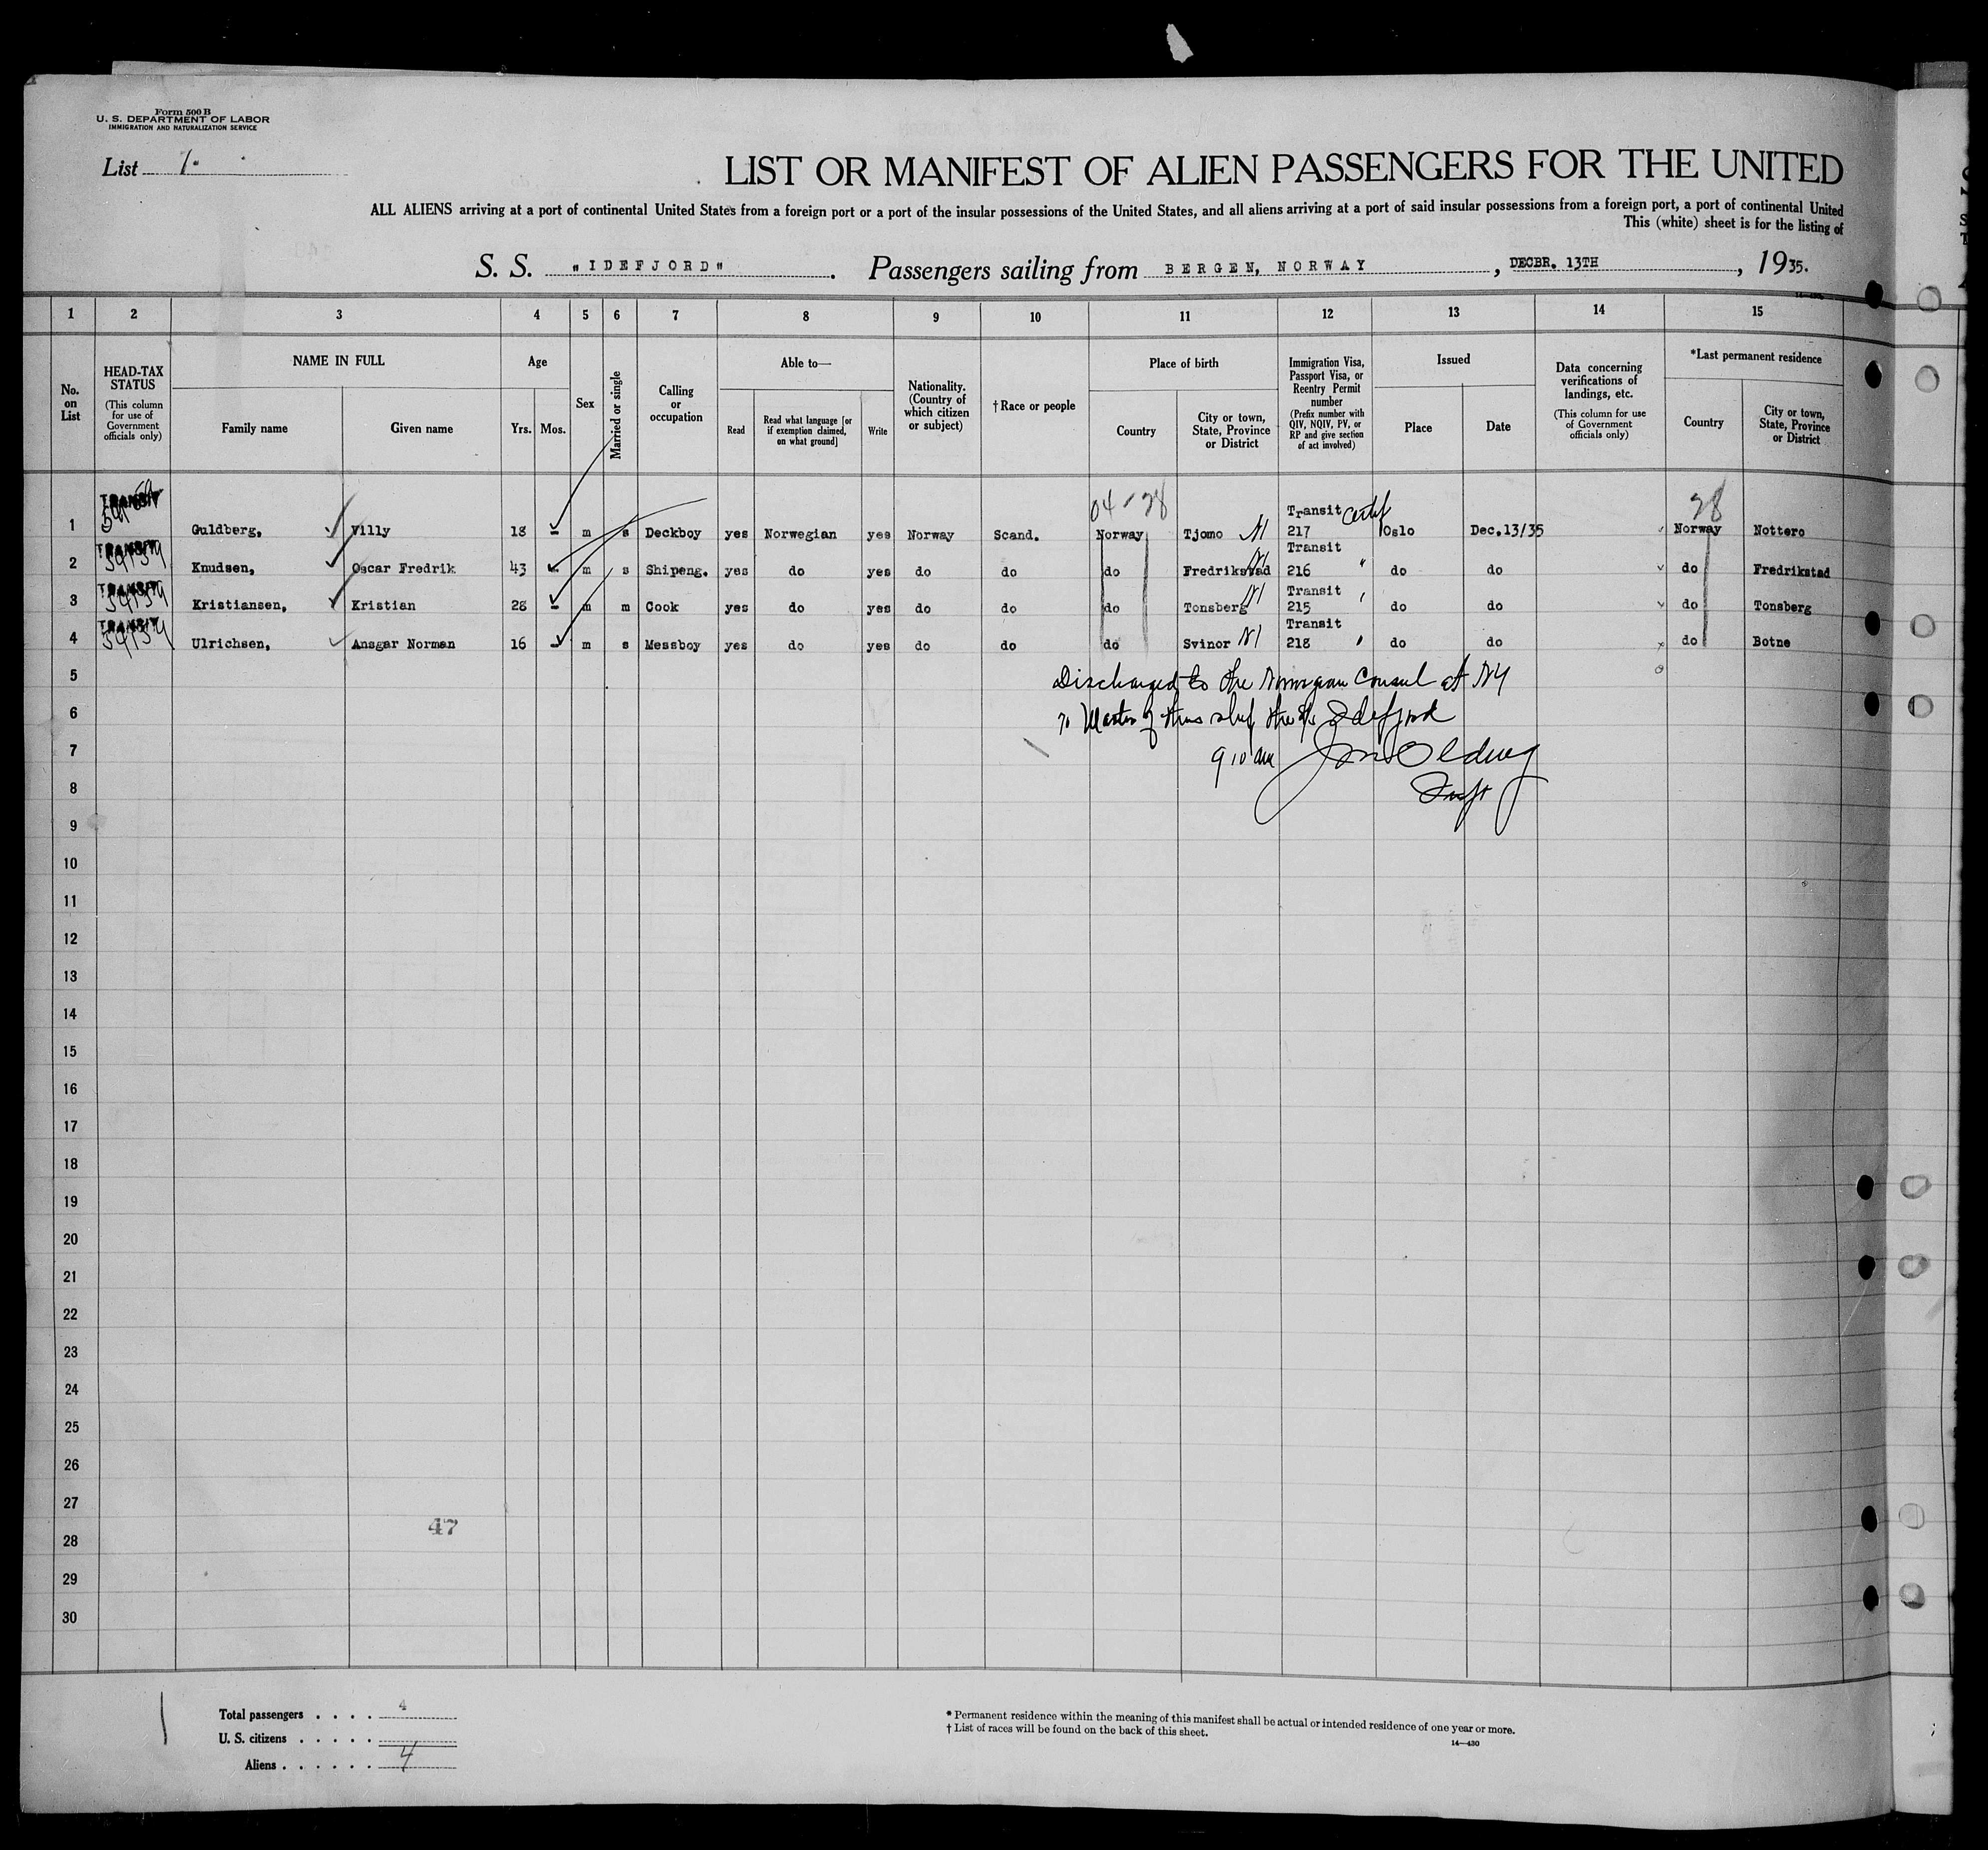 Form 500 B
U. S. DEPARTMENT OF LABOR
IMMIGRATION AND NATURALIZATION SERVICE
List 1.
LIST OR MANIFEST OF ALIEN PASSENGERS FOR THE UNITED
ALL ALIENS arriving at a port of continental United States from a foreign port or a port of the insular possessions of the United States, and all aliens arriving at a port of said insular possessions from a foreign port, a port of continental United
This (white) sheet is for the listing of
S. S. "IDEFJORD". Passengers sailing from BERGEN, NORWAY, DECBR. 13TH, 1935.
1 2 3 4 5 6 7 8 9 10 11 12 13 14 15
No. on List
HEAD-TAX STATUS (This column for use of Government officials only)
NAME IN FULL
Family name Given name
Age
Yrs. Mos.
Sex
Married or single
Calling or occupation
Able to—
Read
Read what language [or if exemption claimed, on what ground]
Write
Nationality. (Country of which citizen or subject)
†Race or people
Place of birth
Country
City or town, State, Province or District
Immigration Visa, Passport Visa, or Reentry Permit number (Prefix number with QIV, NQIV, PV, or RP and give section of act involved)
Issued
Place Date
Data concerning verifications of landings, etc. (This column for use of Government officials only)
*Last permanent residence
Country
City or town, State, Province or District
04-28 28
1 TRANSIT Guldberg, Villy 18 - m s Deckboy yes Norwegian yes Norway Scand. Norway Tjomo Transit certf 217 Oslo Dec.13/35 Norway Nottero
2 TRANSIT Knudsen, Oscar Fredrik 43 - m s Shipeng. yes do yes do do do Fredrikstad Transit 216 " do do do Fredrikstad
3 TRANSIT Kristiansen, Kristian 28 - m m Cook yes do yes do do do Tonsberg Transit 215 do do do Tonsberg
4 TRANSIT Ulrichsen, Ansgar Norman 16 - m s Messboy yes do yes do do do Svinor Transit 218 do do do Botne
5 Discharged to the Norwegian Consul at NY
6 Master of this ship the Idefjord
7 9 10 am
8
9
10
11
12
13
14
15
16
17
18
19
20
21
22
23
24
25
26
27
47
28
29
30
Total passengers . . . . 4
U. S. citizens . . . . .
Aliens . . . . . . 4
* Permanent residence within the meaning of this manifest shall be actual or intended residence of one year or more.
† List of races will be found on the back of this sheet.
14—430